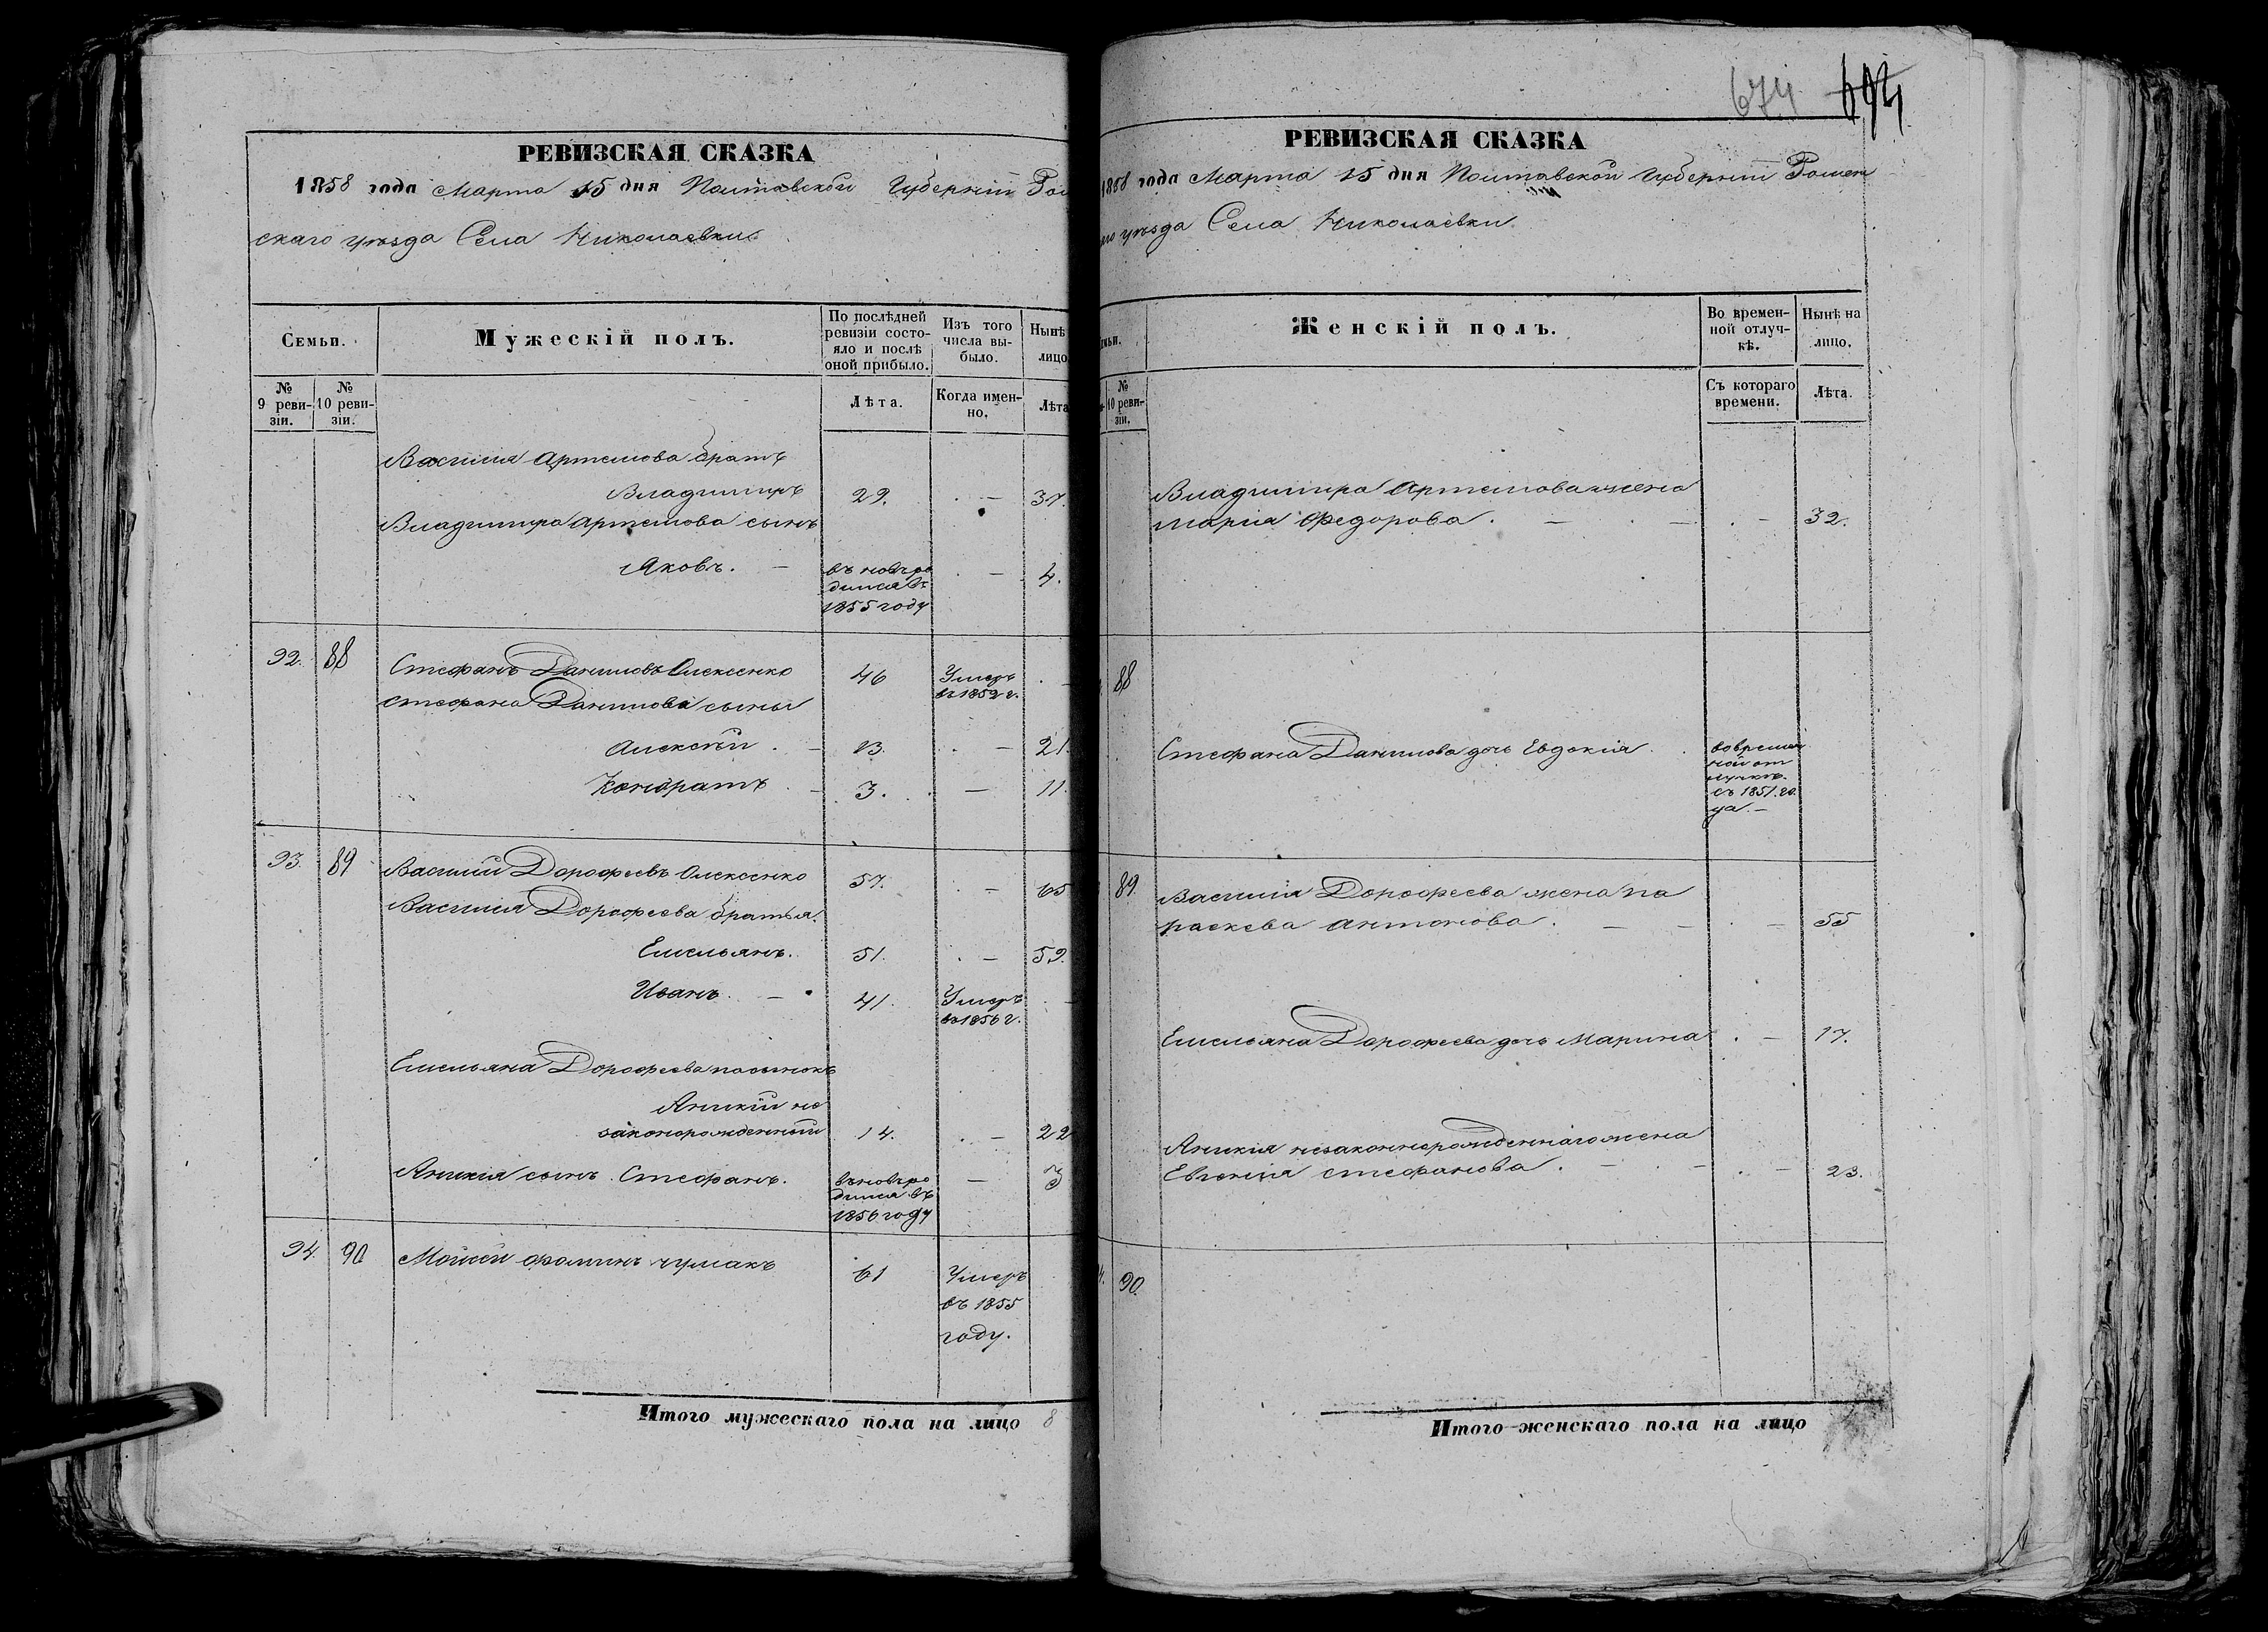 РЕВИЗСКАЯ СКАЗКА
1858 года Марта 15 дня Полтавской Губерніи Ром
скаго уѣзда Села Николаевки.
Семьи.
Мужескій полъ.
По послѣдней ревизіи состояло и послѣ оной прибыло.
Изъ того числа выбыло.
Нынѣ
лицо
№ 9 ревизіи.
№ 10 ревизіи.
Лѣта.
Когда именно.
Лѣта
Василия Артемова братъ
Владимиръ 29. — 37.
Владимира Артемова сынъ
Яковъ. — въ новь ро
дился въ — 4.
1855 году
92. 88 Стефанъ Даниловъ Олексенко 46 Умеръ
въ 1852 г.
Стефана Данилова сыны
Алексѣй. — 13. — 21.
Кондратъ. — 3. — 11.
93. 89 Василий Дорофеевъ Олексенко 57. — 65
Василия Дорофеева братья.
Емельянъ. 51. — 59.
Иванъ. — 41. Умеръ
въ 1856 г.
Емельяна Дорофеева пасынокъ
Аникій не
законорожденный 14. — 22
Аникія сынъ Стефанъ. въ новь ро — 3
дился въ
1856 году
94. 90 Мойсей Фоминъ Чумакъ 61 Умеръ
въ 1855
году.
Итого мужескаго пола на лицо 8
674
РЕВИЗСКАЯ СКАЗКА
1858 года Марта 15 дня Полтавской Губерніи Ромен
аго уѣзда Села Николаевки.
емьи.
Женскій полъ.
Во временной отлучкѣ.
Нынѣ на лицо.
№ 10 ревизіи.
Съ котораго времени.
Лѣта.
Владимира Артемова жена
Марія Федорова. — — — 32.
88
Стефана Данилова дочь Евдокія. во времен
ной от
лучкѣ.
съ 1851. го
да. —
89. Василия Дорофеева жена Па
раскева Антонова. — — — 55
Емельяна Дорофеева дочь Марина — 17.
Аникія незаконнорожденнаго жена
Евгенія Стефанова. — — — 23.
90.
Итого женскаго пола на лицо